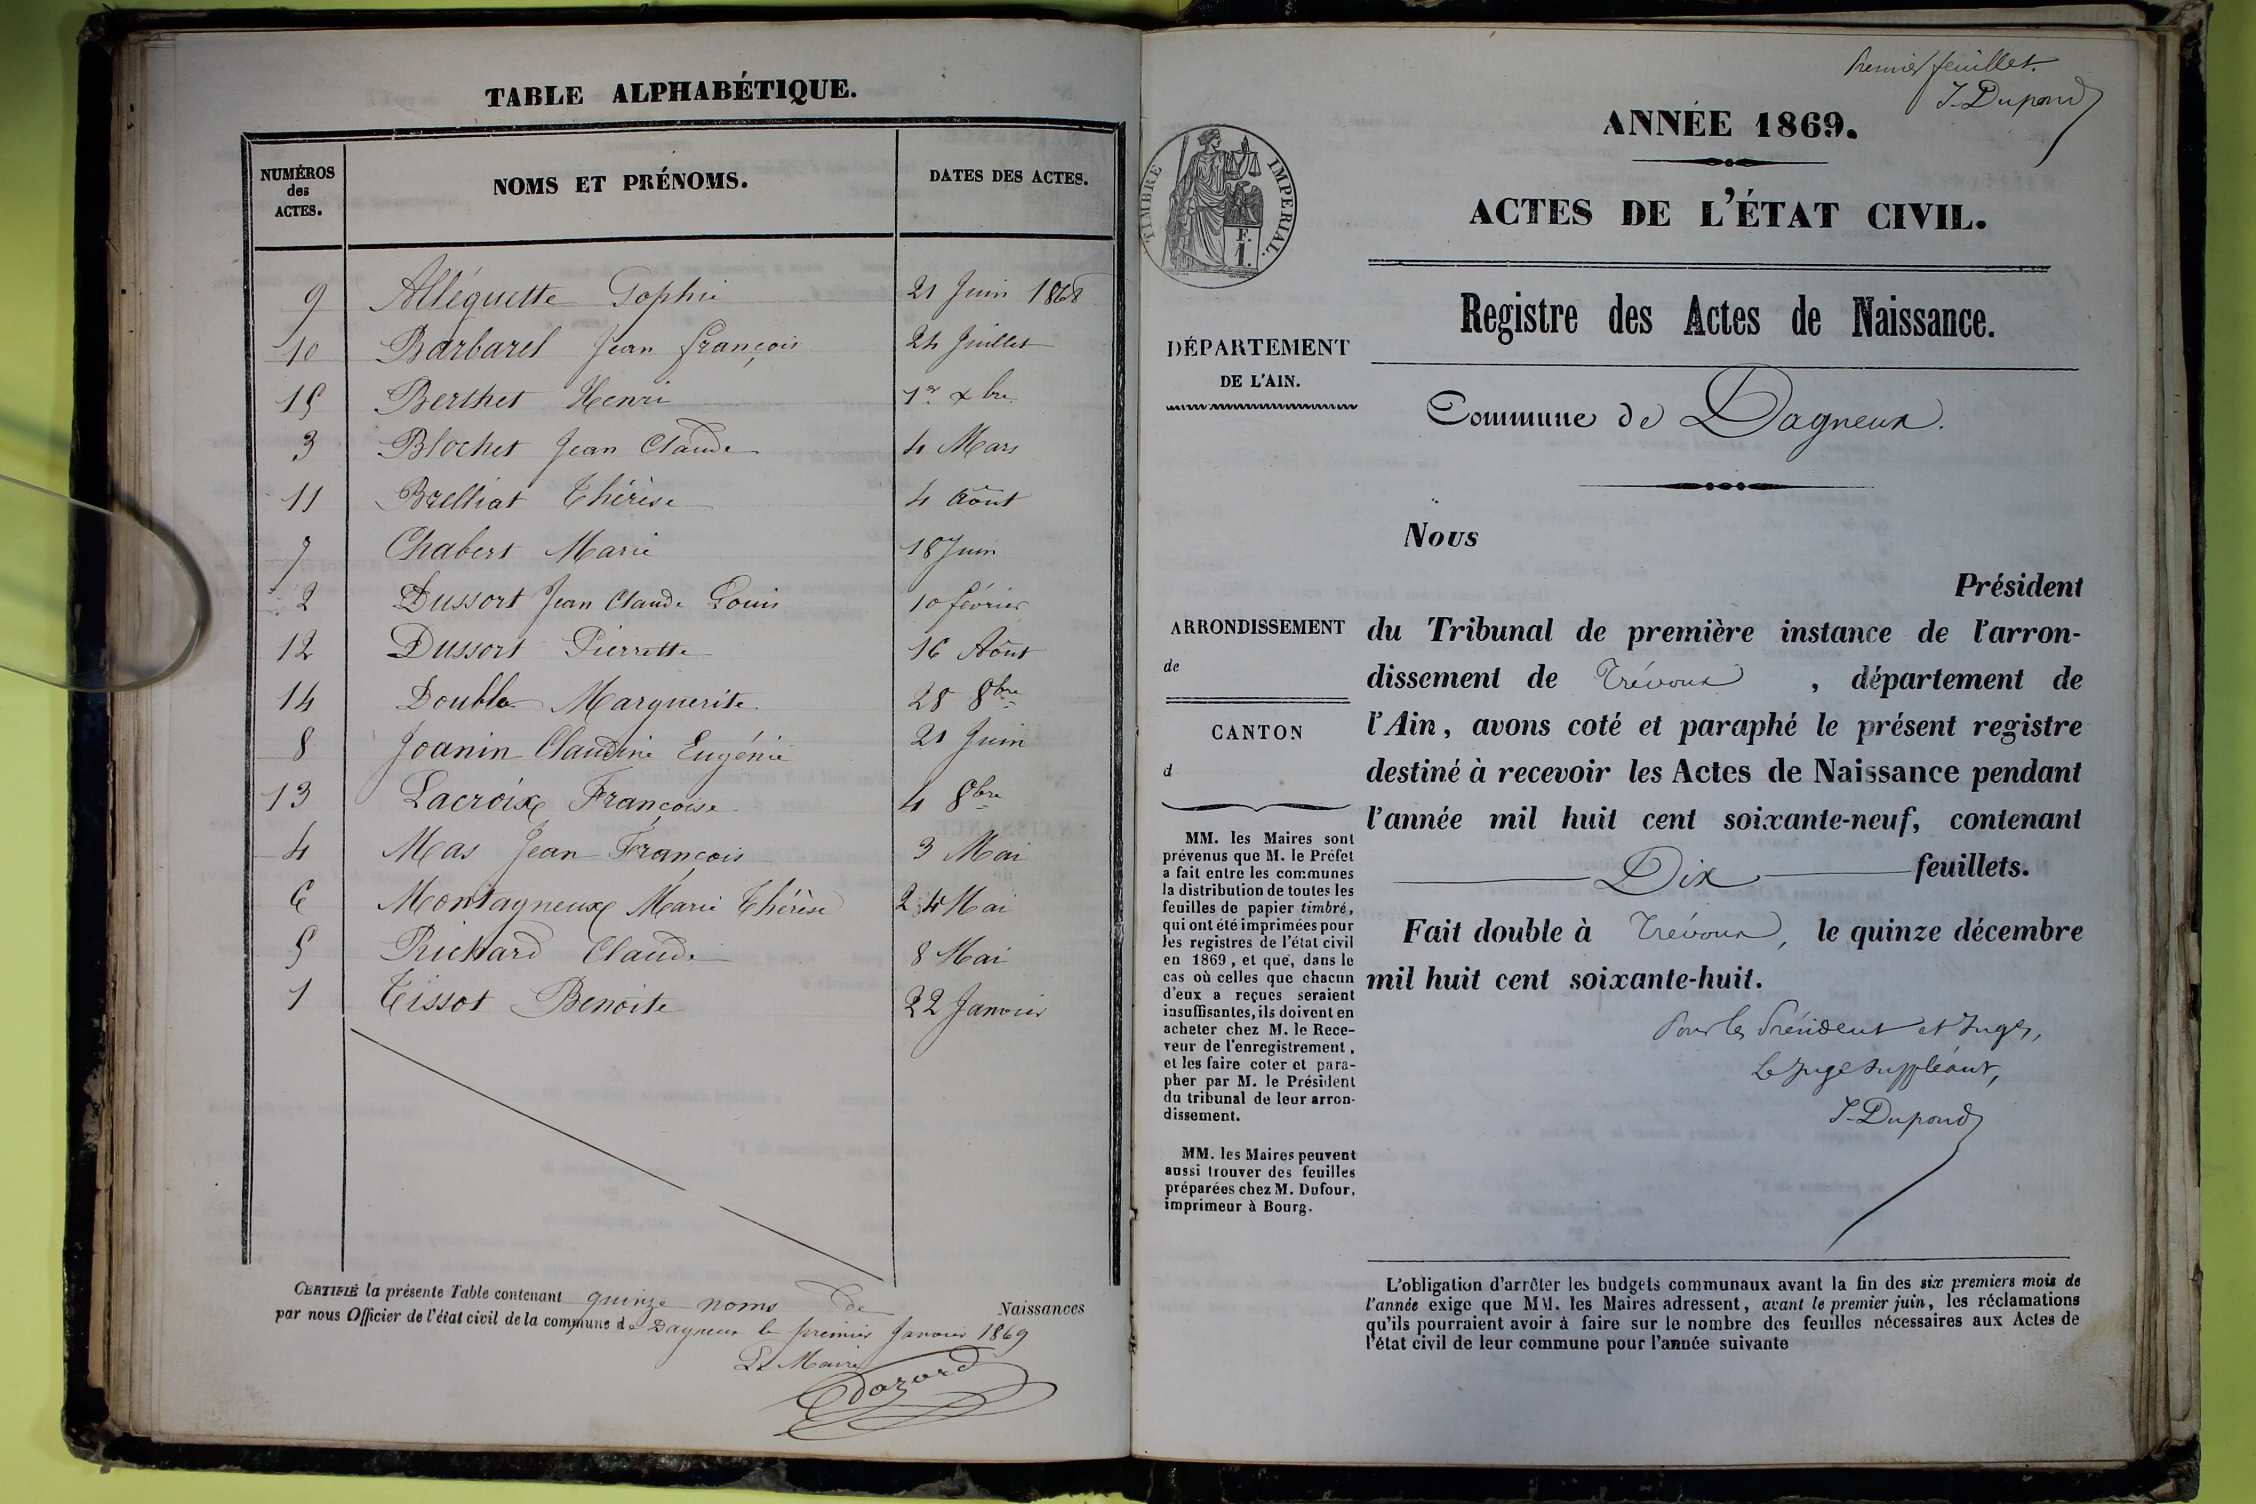 TABLE ALPHABÉTIQUE.
NUMÉROS des ACTES.
NOMS ET PRÉNOMS.
DATES DES ACTES.
9 Alléguette Sophie 21 Juin 1868
10 Barbarel Jean françois 24 Juillet
15 Berthet Henri 1er xbre
3 Blochet Jean Claude 4 Mars
11 Brelliat Thérèse 4 Août
7 Chabert Marie 18 Juin
2 Dussort Jean Claude Louis 10 février
12 Dussort Pierrette 16 Août
14 Double Marguerite 28 8bre
8 Joanin Claudine Eugénie 21 Juin
13 Lacroix Françoise 4 8bre
4 Mas Jean François 3 Mai
6 Montagneux Marie Thérèse 24 Mai
5 Richard Claude 8 Mai
1 Tissot Benoite 22 Janvier
CERTIFIÉ la présente Table contenant quinze noms de Naissances
par nous Officier de l'état civil de la commune de Dagneux le premier Janvier 1869
Le Maire
Premier feuillet.
J. Dupond
TIMBRE IMPERIAL.
F.
1.
ANNÉE 1869.
ACTES DE L'ÉTAT CIVIL.
Registre des Actes de Naissance.
DÉPARTEMENT
DE L'AIN.
Commune de Dagneux.
ARRONDISSEMENT
de
CANTON
d
MM. les Maires sont
prévenus que M. le Préfet
a fait entre les communes
la distribution de toutes les
feuilles de papier timbré,
qui ont été imprimées pour
les registres de l'état civil
en 1869, et que, dans le
cas où celles que chacun
d'eux a reçues seraient
insuffisantes, ils doivent en
acheter chez M. le Rece-
veur de l'enregistrement,
et les faire coter et para-
pher par M. le Président
du tribunal de leur arron-
dissement.
MM. les Maires peuvent
aussi trouver des feuilles
préparées chez M. Dufour,
imprimeur à Bourg.
Nous
Président
du Tribunal de première instance de l'arron-
dissement de Trévoux, département de
l'Ain, avons coté et paraphé le présent registre
destiné à recevoir les Actes de Naissance pendant
l'année mil huit cent soixante-neuf, contenant
Dix feuillets.
Fait double à Trévoux, le quinze décembre
mil huit cent soixante-huit.
Pour les Président et Juges,
Le Juge suppléant,
J. Dupond
L'obligation d'arrêter les budgets communaux avant la fin des six premiers mois de
l'année exige que MM. les Maires adressent, avant le premier juin, les réclamations
qu'ils pourraient avoir à faire sur le nombre des feuilles nécessaires aux Actes de
l'état civil de leur commune pour l'année suivante